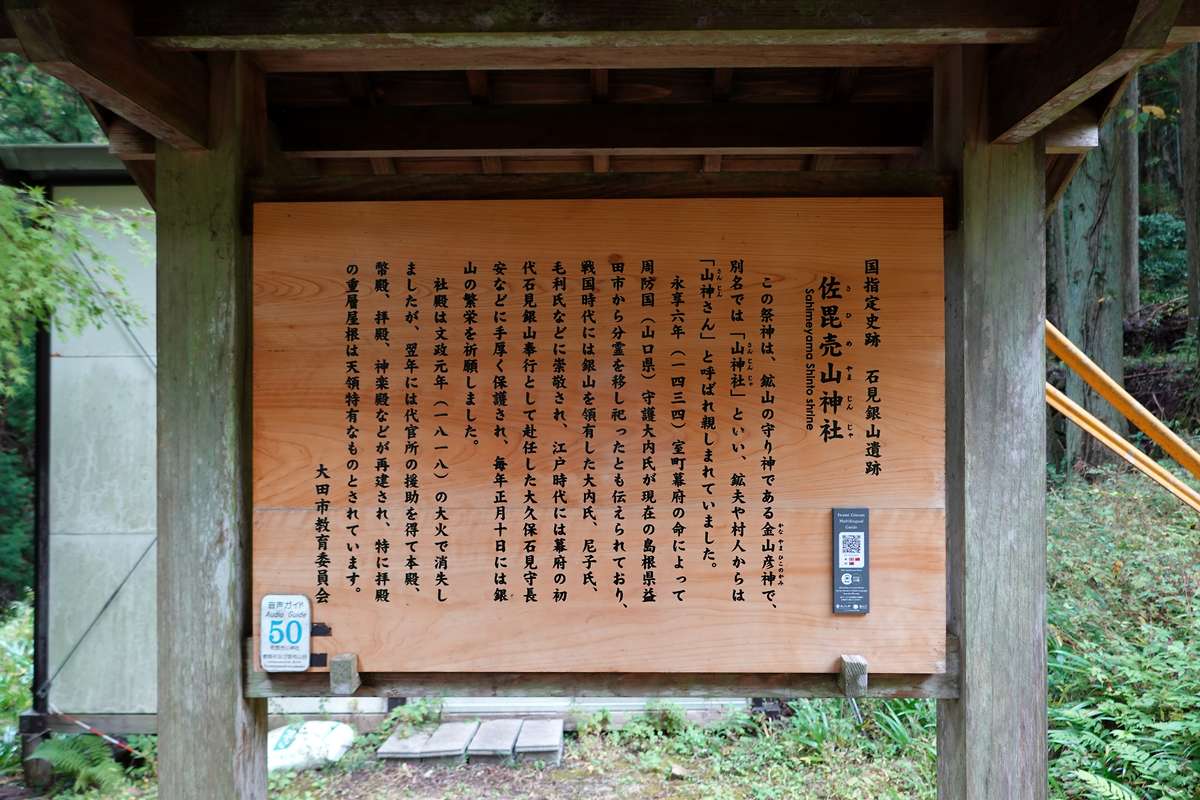 国指定史跡　石見銀山遺跡
佐毘売山神社
さひめやまじんじゃ
Sahimeyama Shinto shrine
この祭神は、鉱山の守り神である金山彦神で、
かなやまひこのかみ
別名では「山神社」といい、鉱夫や村人からは
さんじんじゃ
「山神さん」と呼ばれ親しまれていました。
さんじん
永享六年（一四三四）室町幕府の命によって
周防国（山口県）守護大内氏が現在の島根県益
田市から分霊を移し祀ったとも伝えられており、
戦国時代には銀山を領有した大内氏、尼子氏、
毛利氏などに崇敬され、江戸時代には幕府の初
代石見銀山奉行として赴任した大久保石見守長
安などに手厚く保護され、毎年正月十日には銀
山の繁栄を祈願しました。
社殿は文政元年（一八一八）の大火で消失し
ましたが、翌年には代官所の援助を得て本殿、
幣殿、拝殿、神楽殿などが再建され、特に拝殿
の重層屋根は天領特有なものとされています。
大田市教育委員会
音声ガイド
Audio Guide
50
佐毘売山神社
Ohda Circuit
Multilingual
Guide